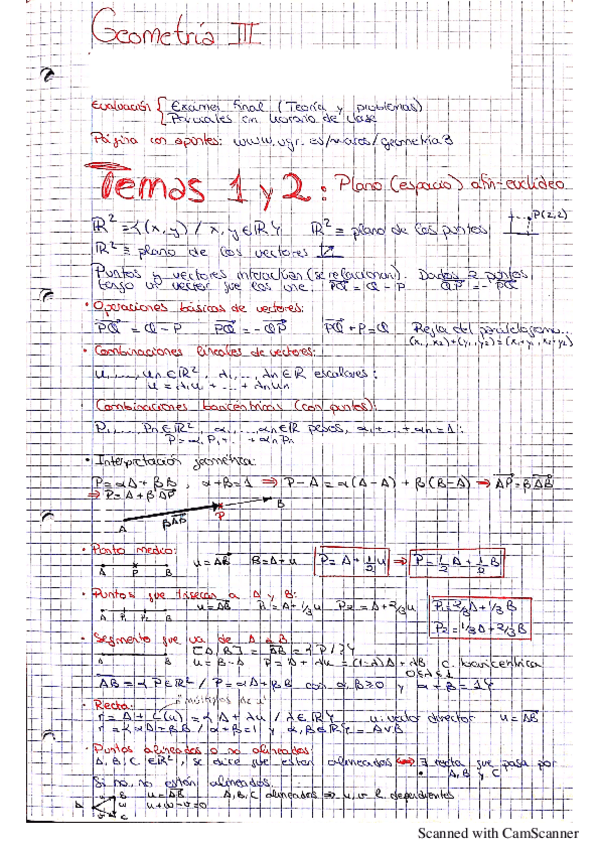 Geometría III
Evaluación { Examen final (Teoría y problemas)
Parciales en horario de clase
Página con apuntes: www.ugr.es/
Temas 1 y 2: Plano (espacio) afín-euclídeo
ℝ² = {(x, y) / x, y ∈ ℝ} ℝ² ≡ plano de los puntos P(2,2)
ℝ² ≡ plano de los vectores
Puntos y vectores interactúan (se relacionan). Dados 2 puntos,
tengo un vector que los une: PQ = Q - P QP = -PQ
· Operaciones básicas de vectores:
PQ = Q - P PQ = -QP PQ + P = Q Regla del paralelogramo...
· Combinaciones lineales de vectores:
u₁, ..., uₙ ∈ ℝ², λ₁, ..., λₙ ∈ ℝ escalares:
u = λ₁u₁ + ... + λₙuₙ
· Combinaciones baricéntricas (con puntos):
P₁, ..., Pₙ ∈ ℝ², α₁, ..., αₙ ∈ ℝ pesos, α₁ + ... + αₙ = 1:
P = α₁P₁ + ... + αₙPₙ
· Interpretación geométrica:
P = αA + βB, α + β = 1 ⇒ P - A = α(A - A) + β(B - A) ⇒ AP = βAB
⇒ P = A + βAB
A βAB P B
· Punto medio:
A P B u = AB B = A + u P = A + 1/2 u ⇒ P = 1/2 A + 1/2 B
· Puntos que trisecan a A y B:
A P₁ P₂ B u = AB P₂ = A + 2/3 u P₁ = 2/3 A + 1/3 B
P₂ = 1/3 A + 2/3 B
· Segmento que va de A a B
A B u = B - A P = A + λu = (1-λ)A + λB C. baricéntrica
0 ≤ λ ≤ 1
AB = {P ∈ ℝ² / P = αA + βB con α, β ≥ 0 y α + β = 1}
· Recta: múltiplos de u
r = A + L(u) = {A + λu / λ ∈ ℝ} u: vector director u = AB
r = {αA + βB / α + β = 1 y α, β ∈ ℝ} = A∨B
· Puntos alineados o no alineados:
A, B, C ∈ ℝ², se dice que están alineados ⟺ ∃ recta que pasa por
A, B y C
Si no, no están alineados.
u = AB A, B, C alineados ⇒ u, v l. dependientes
u + w - v = 0
Scanned with CamScanner